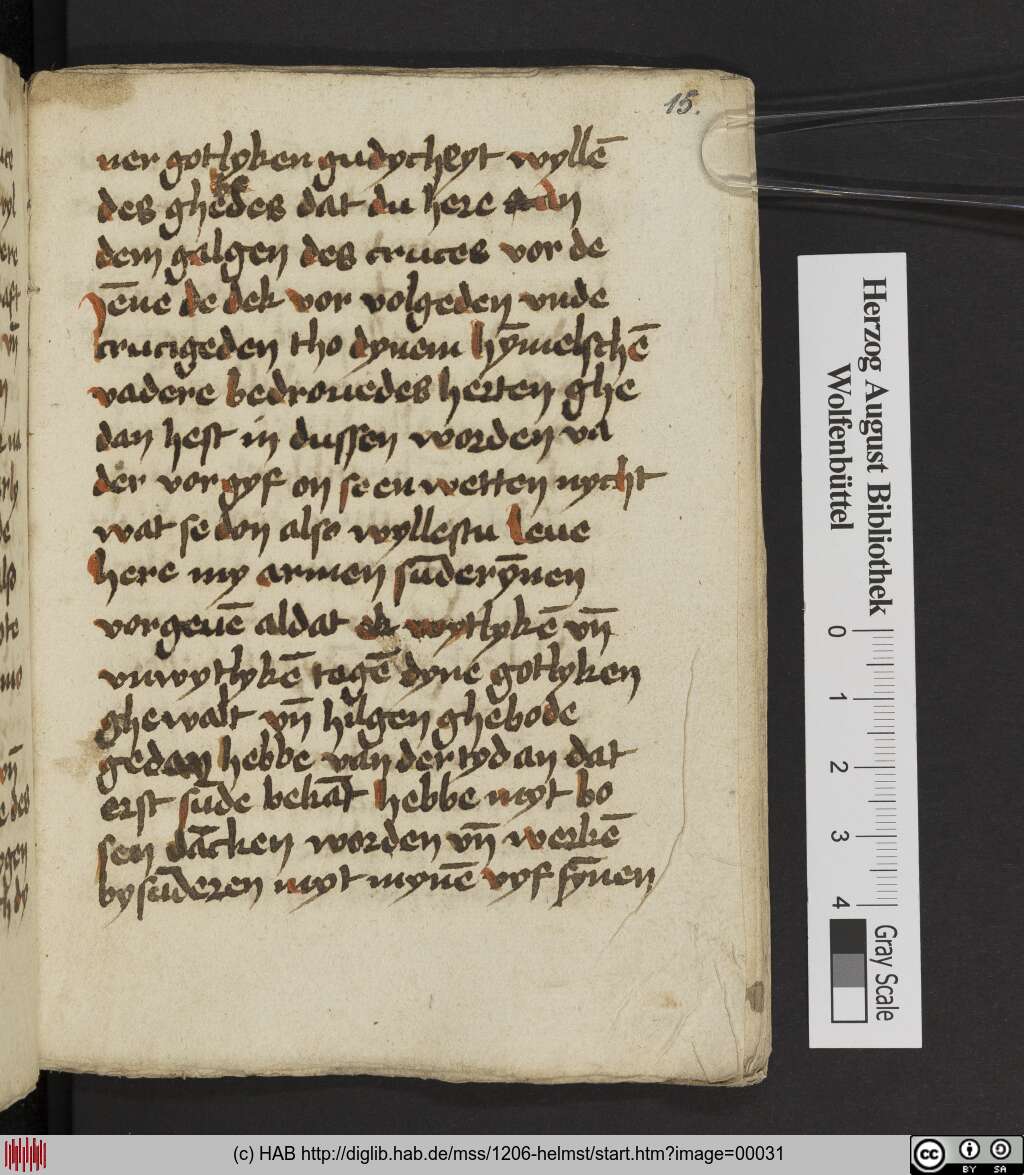 15.
ner gotlyken gudycheyt wyllē
des ghedes dat du here an
dem galgen des cruces vor de
iēne de dek vor volgeden vnde
crucigeden tho dynem hȳmelschē
vadere bedroůedes herten ghe
dan hest in dussen worden va
der vor gyf on se en wetten nycht
wat se don also wyllestu leue
here my armen sūderȳnen
vorgeuē al dat ek wytlykē vn̄
vnwytlykē tegē dyne gotlyken
ghewalt vn̄ hilgen ghebode
gedan hebbe van der tyd an dat
erst sūde bekāt hebbe myt bo
sen dācken worden vn̄ werkē
bysūderen myt mynē vyf sȳnen
Herzog August Bibliothek
Wolfenbüttel
0 1 2 3 4
Gray Scale
(c) HAB http://diglib.hab.de/mss/1206-helmst/start.htm?image=00031
cc BY SA